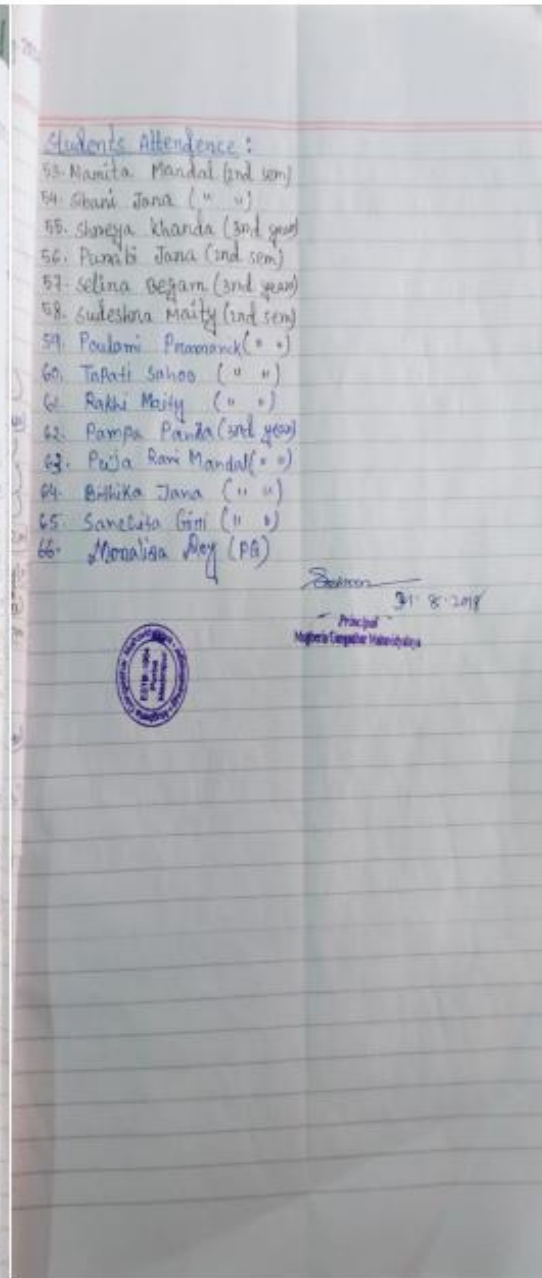 Students Attendence :
53. Namita Mandal (2nd sem)
54. Sibani Jana (" ")
55. Shreya Khanda (3nd year)
56. Purabi Jana (2nd sem)
57. Selina Begam (3nd year)
58. Sudeshna Maity (2nd sem)
59. Poulami Pramanick (" ")
60. Tapati Sahoo (" ")
61. Rakhi Maity (" ")
62. Pampa Panda (3nd year)
63. Puja Rani Mandal (" ")
64. Bithika Jana (" ")
65. Sanchita Giri (" ")
66. Monalisa Dey (PG)
31.8.2018
Principal
Mugberia Gangadhar Mahavidyalaya